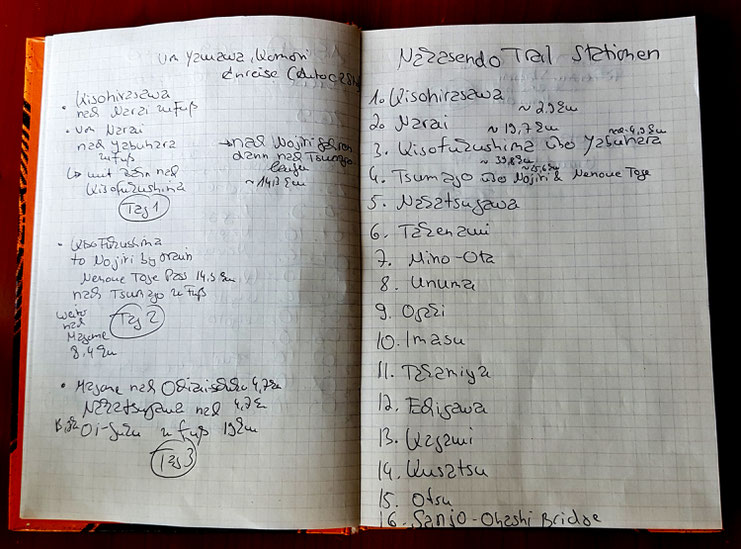 von Yamawa, Komori
Anreise (Auto
• Kisohirasawa
nach Narai zu Fuß
• von Narai
nach Yabuhara
zu Fuß
↳ mit Bahn nach
Kisofukushima
Tag 1
→ nach Nojiri fahren
dann nach Tsumago
laufen
~ 14,3 km
• Kisofukushima
to Nojiri by train
Nenoue Toge Pass 14,5 km
nach Tsumago zu Fuß
weiter
nach
Magome
8,4 km
Tag 2
• Magome nach 4,7 km
Nakatsugawa nach 4,7 km
Oi-Juku zu Fuß 19 km
Tag 3
Nakasendo Trail Stationen
1. Kisohirasawa
~ 2,9 km
2. Narai
~ 19,7 km
3. Kisofukushima Yabuhara
~ 39,8 km
4. Tsumago Nojiri & Nenoue Toge
5. Nakatsugawa
6. Takenami
7. Mino-Ota
8. Unuma
9. Ogaki
10. Imasu
11. Takamiya
12. Echigawa
13. Kagami
14. Kusatsu
15. Otsu
16. Sanjo-Ohashi Bridge